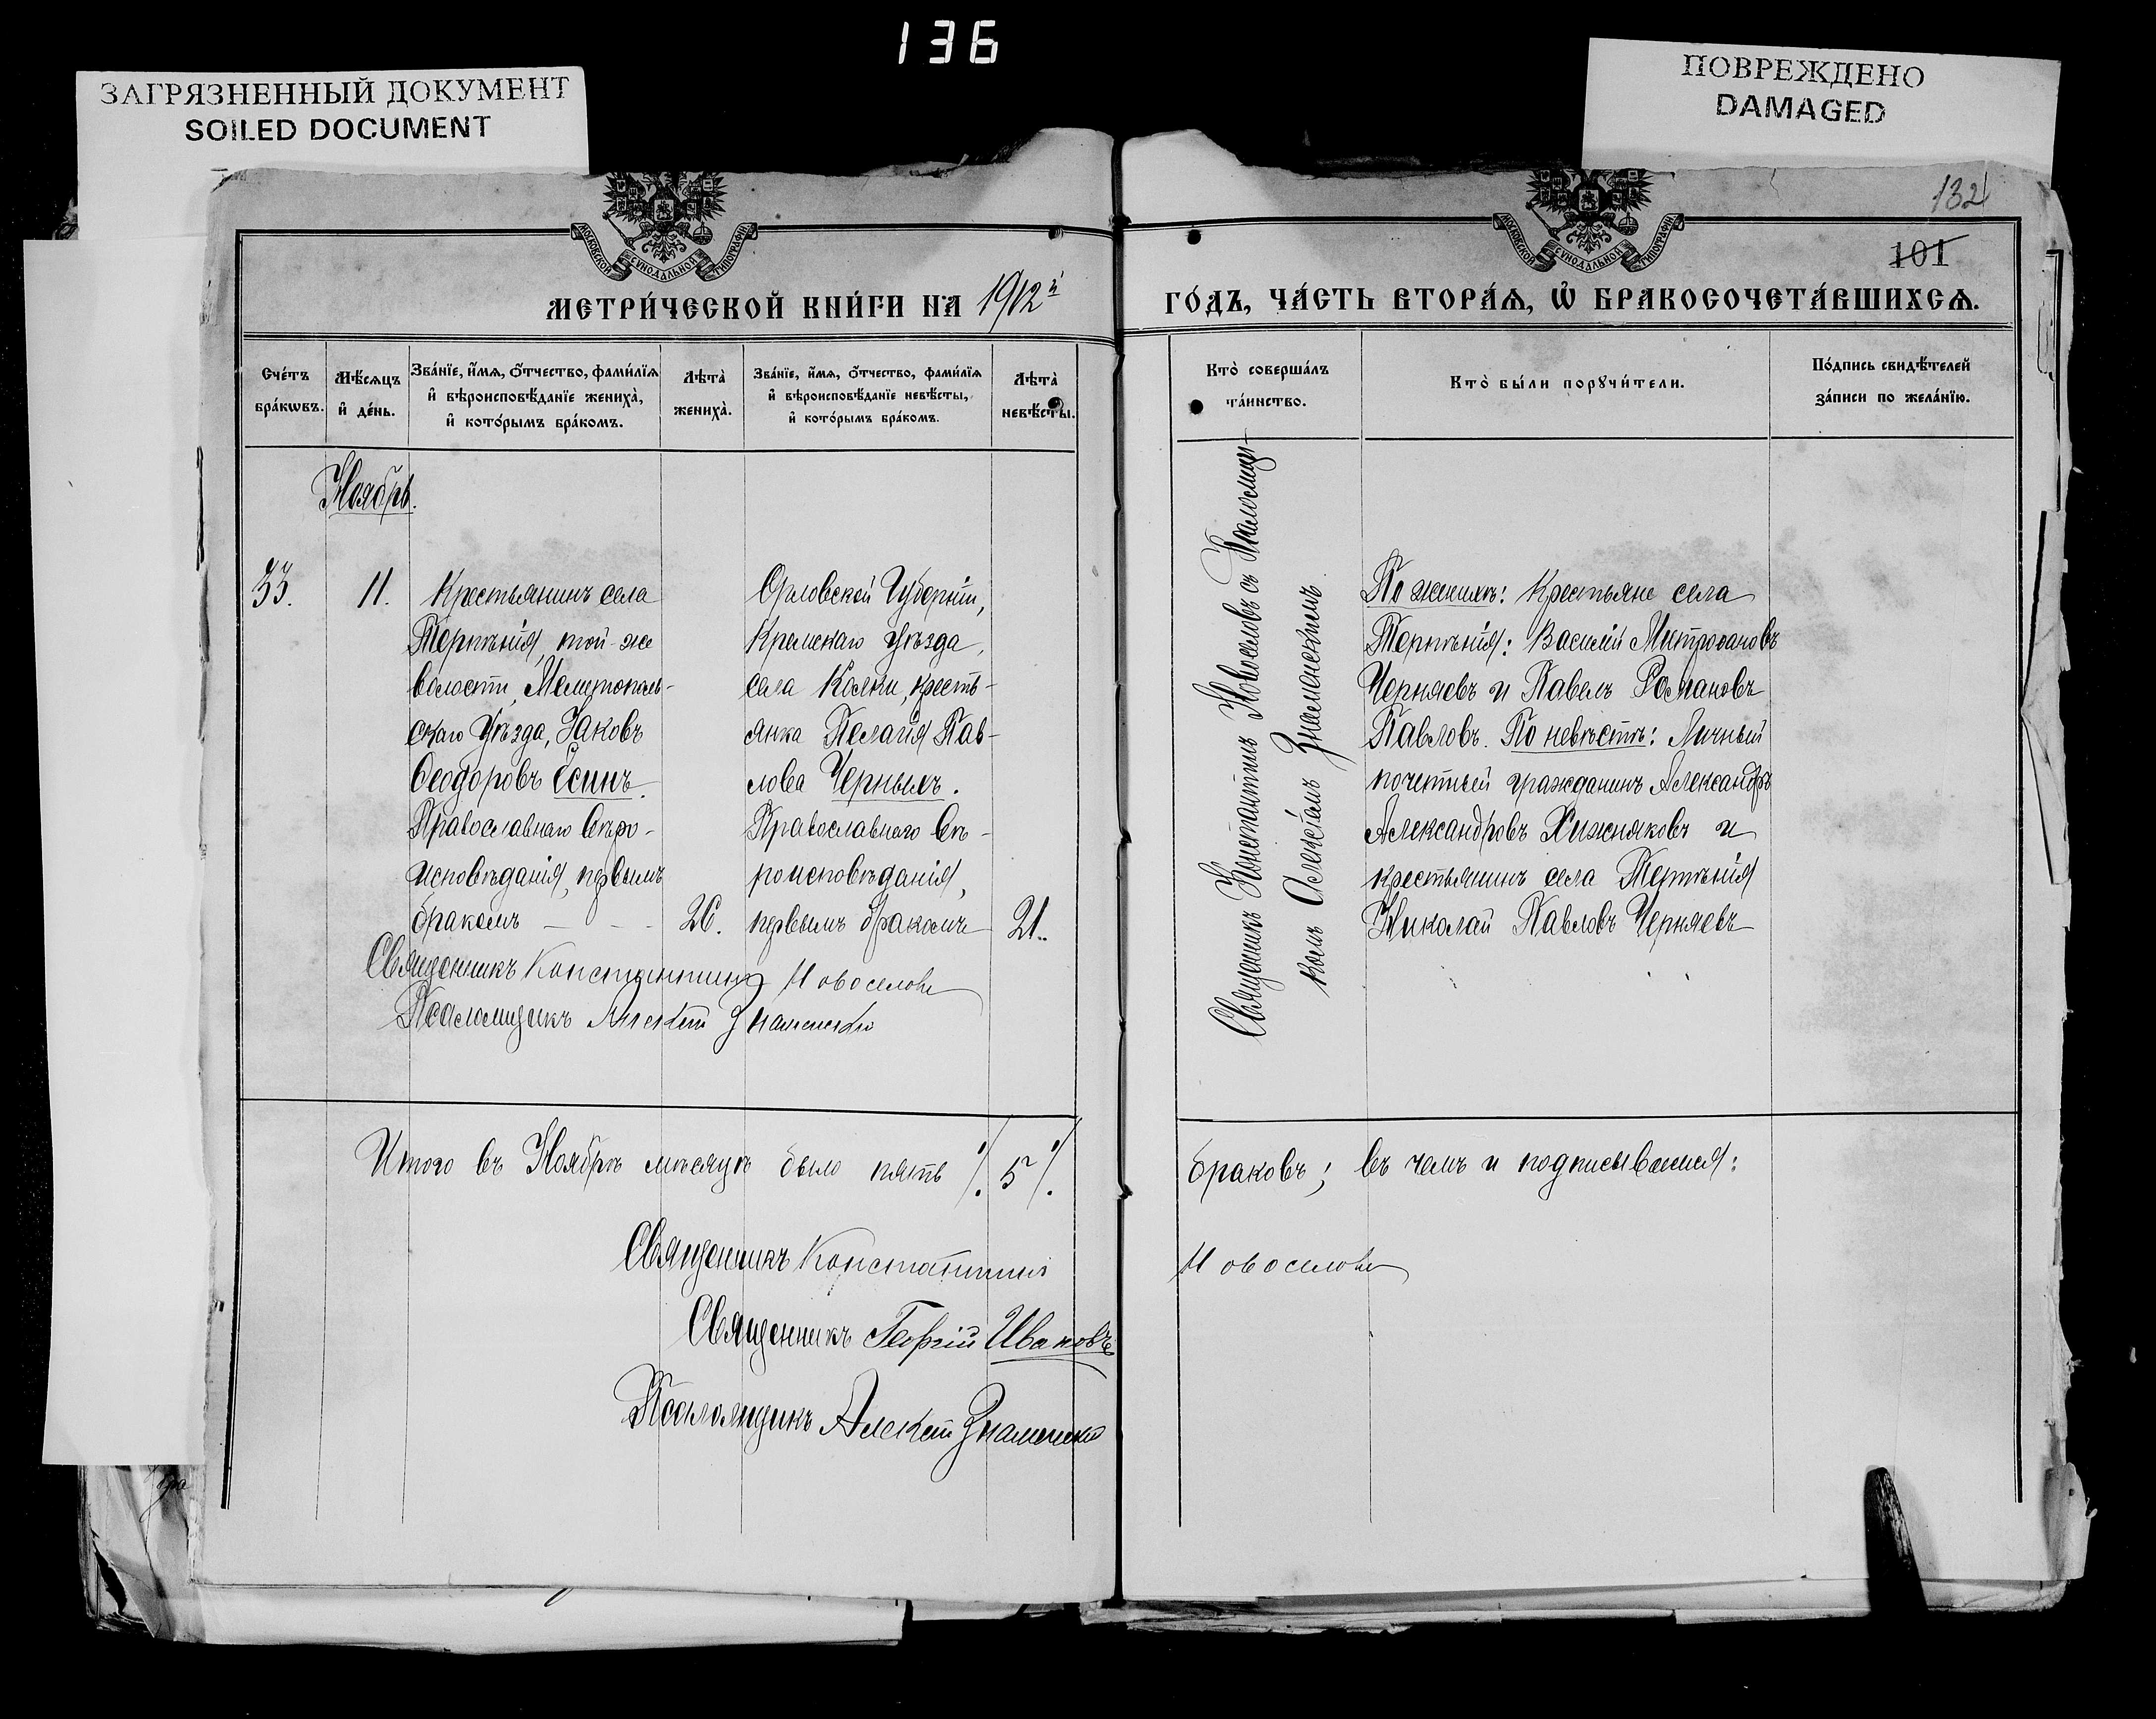 136
ЗАГРЯЗНЕННЫЙ ДОКУМЕНТ
SOILED DOCUMENT
ПОВРЕЖДЕНО
DAMAGED
132
101
МОСКОВСКОЙ СѴНОДАЛЬНОЙ ТИПОГРАФІИ
МОСКОВСКОЙ СѴНОДАЛЬНОЙ ТИПОГРАФІИ
МЕТРИ́ЧЕСКОЙ КНИ́ГИ НА 1912й
ГО́ДЪ, ЧА́СТЬ ВТОРА́Ѧ, Ѡ҆ БРАКОСОЧЕТА́ВШИХСѦ.
Сче́тъ
бра́кѡвъ.
Мѣ́сѧцъ
и҆ де́нь.
Зва́нїе, и҆́мѧ, ѻ҆́тчество, фами́лїѧ
и҆ вѣроисповѣ́данїе жениха̀,
и҆ кото́рымъ бра́комъ.
Лѣта̀
жениха̀.
Зва́нїе, и҆́мѧ, ѻ҆́тчество, фами́лїѧ
и҆ вѣроисповѣ́данїе невѣ́сты,
и҆ кото́рымъ бра́комъ.
Лѣта̀
невѣ́сты.
Кто̀ соверша́лъ
та́инство.
Кто̀ бы́ли порꙋчи́тели.
По́дпись свидѣ́телей
за́писи по жела́нїю.
Ноябрь.
33.
11.
Крестьянинъ села
Терпѣнія, той-же
волости, Мелитополь-
скаго уѣзда, Іаковъ
Ѳеодоровъ Есинъ.
Православнаго вѣро-
исповѣданія, первымъ
бракомъ
26.
Орловской Губерніи,
Кромскаго уѣзда,
села Колки, кресть-
янка Пелагія Пав-
лова Черныхъ.
Православнаго вѣ-
роисповѣданія,
первымъ бракомъ
21.
Священникъ Константинъ Новоселовъ
Псаломщикъ Алексѣй Знаменскій
Священникъ Константинъ Новоселовъ съ Псаломщи-
комъ Алексіемъ Знаменскимъ.
По женихѣ: Крестьяне села
Терпѣнія: Василій Митрофановъ
Черняевъ и Павелъ Романовъ
Павловъ. По невѣстѣ: Личный
почетный гражданинъ Александръ
Александровъ Хижняковъ и
крестьянинъ села Терпѣнія
Николай Павловъ Черняевъ
Итого въ Ноябрѣ мѣсяцѣ было пять ./. 5 /.
браковъ; въ чемъ и подписываемся:
Священникъ Константинъ
Новоселовъ
Священникъ Георгій Ивановъ
Псаломщикъ Алексѣй Знаменскій